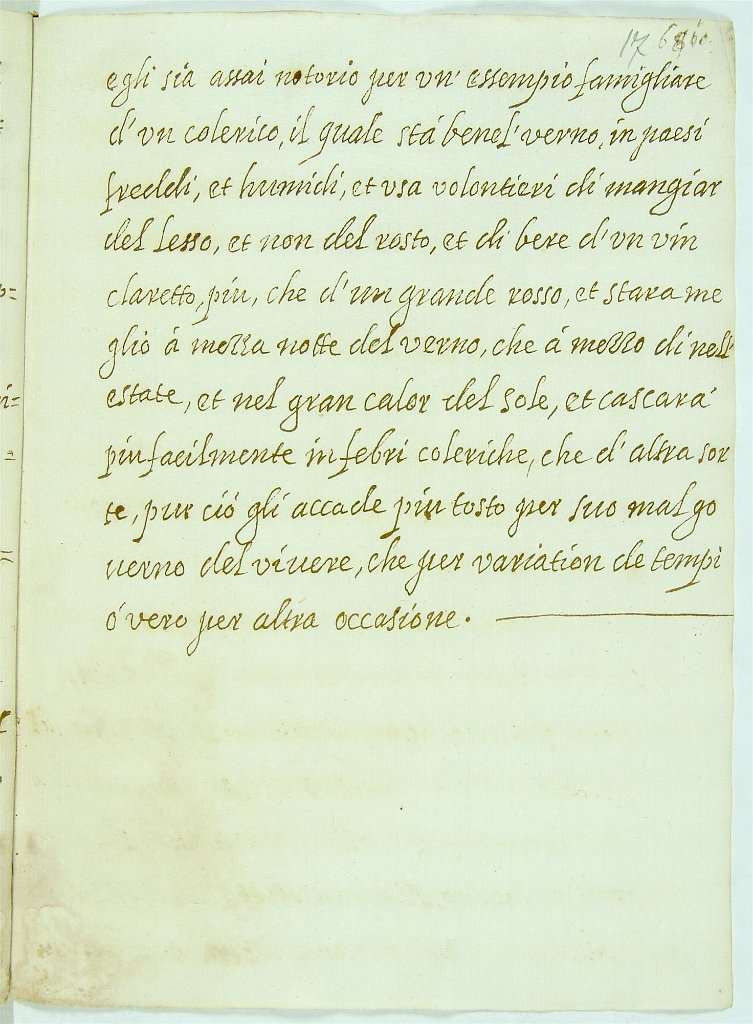 17
egli sia assai notorio per vn' essempio famigliare
d' vn colerico, il quale stà bene l' verno, in paesi
freddi, et humidi, et vsa volontieri di mangiar
del lesso, et non del rosto, et di bere d' vn vin
claretto, piu, che d' un grande rosso, et stara me
glio à mezza notte del verno, che à mezzo di nell'
estate, et nel gran calor del sole, et cascarà
piu facilmente in febri coleriche, che d' altra sor
te, pur ciò gli accade piu tosto per suo mal go
uerno del viuere, che per variation de tempi
ò vero per altra occasione.